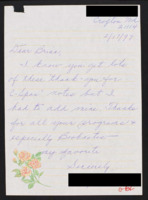 2/27/97
Dear Brian,
I know you get lots
of these thank you for
notes but I
had to add mine. Thanks
for all your programs &
especially Booknotes
my favorite
Sincerely